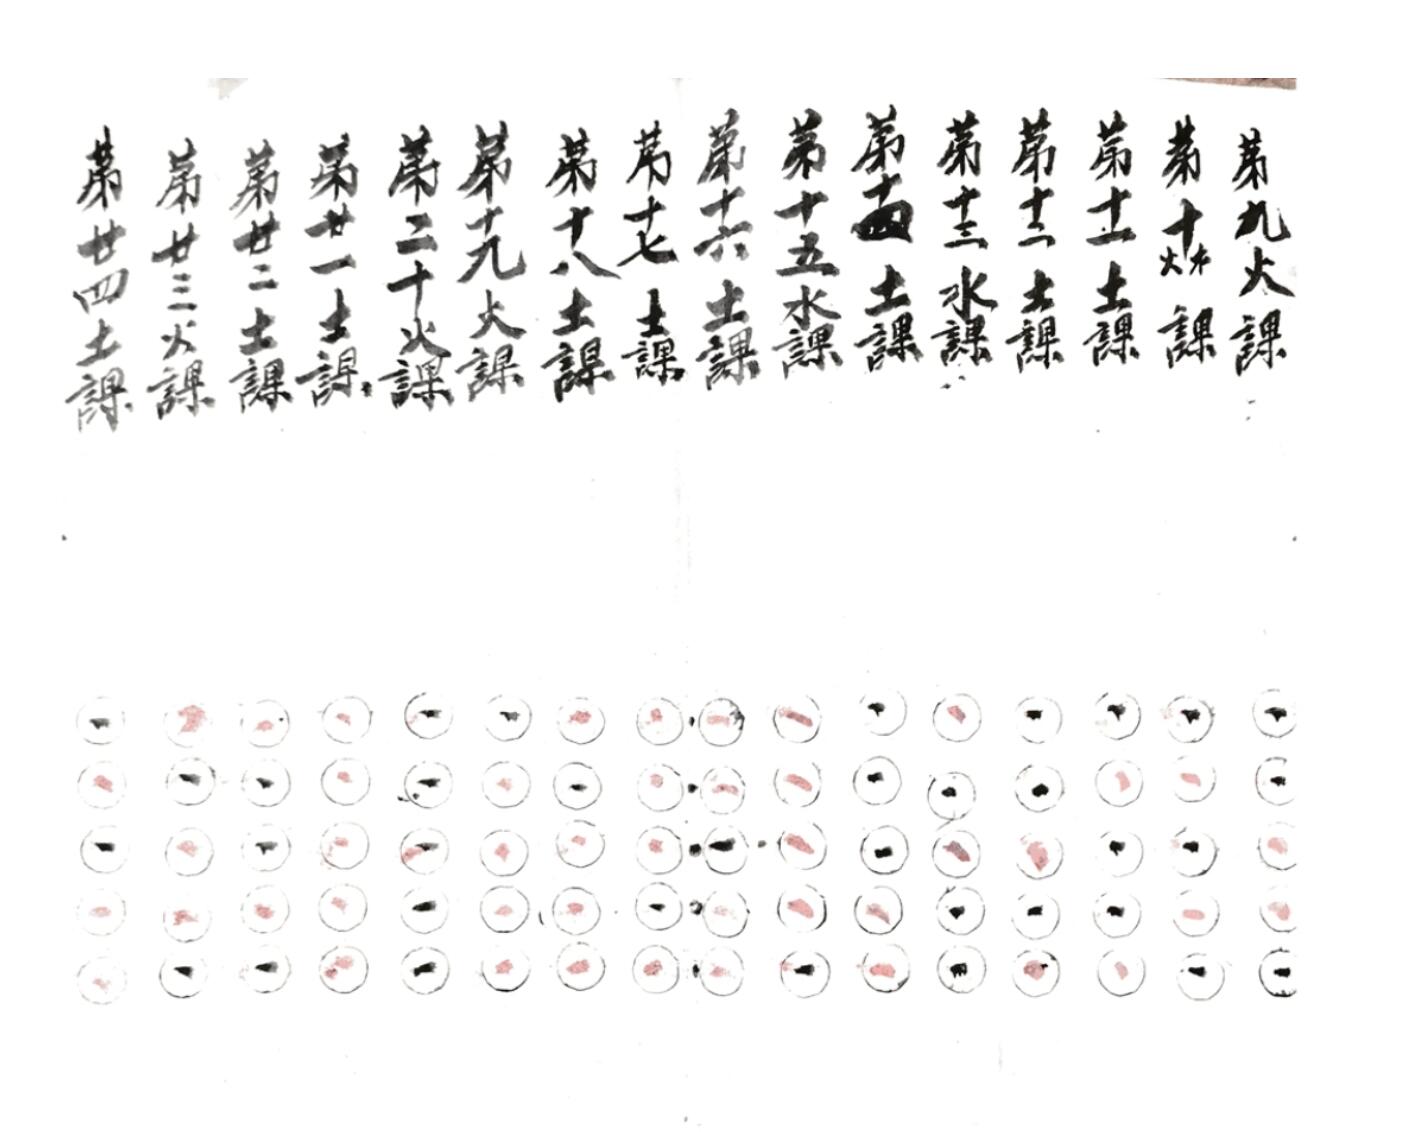 第九火課
第十火水課
第十一土課
第十二土課
第十三水課
第十四土課
第十五水課
第十六土課
第十七土課
第十八土課
第十九火課
第二十火課
第廿一土課
第廿二土課
第廿三火課
第廿四土課